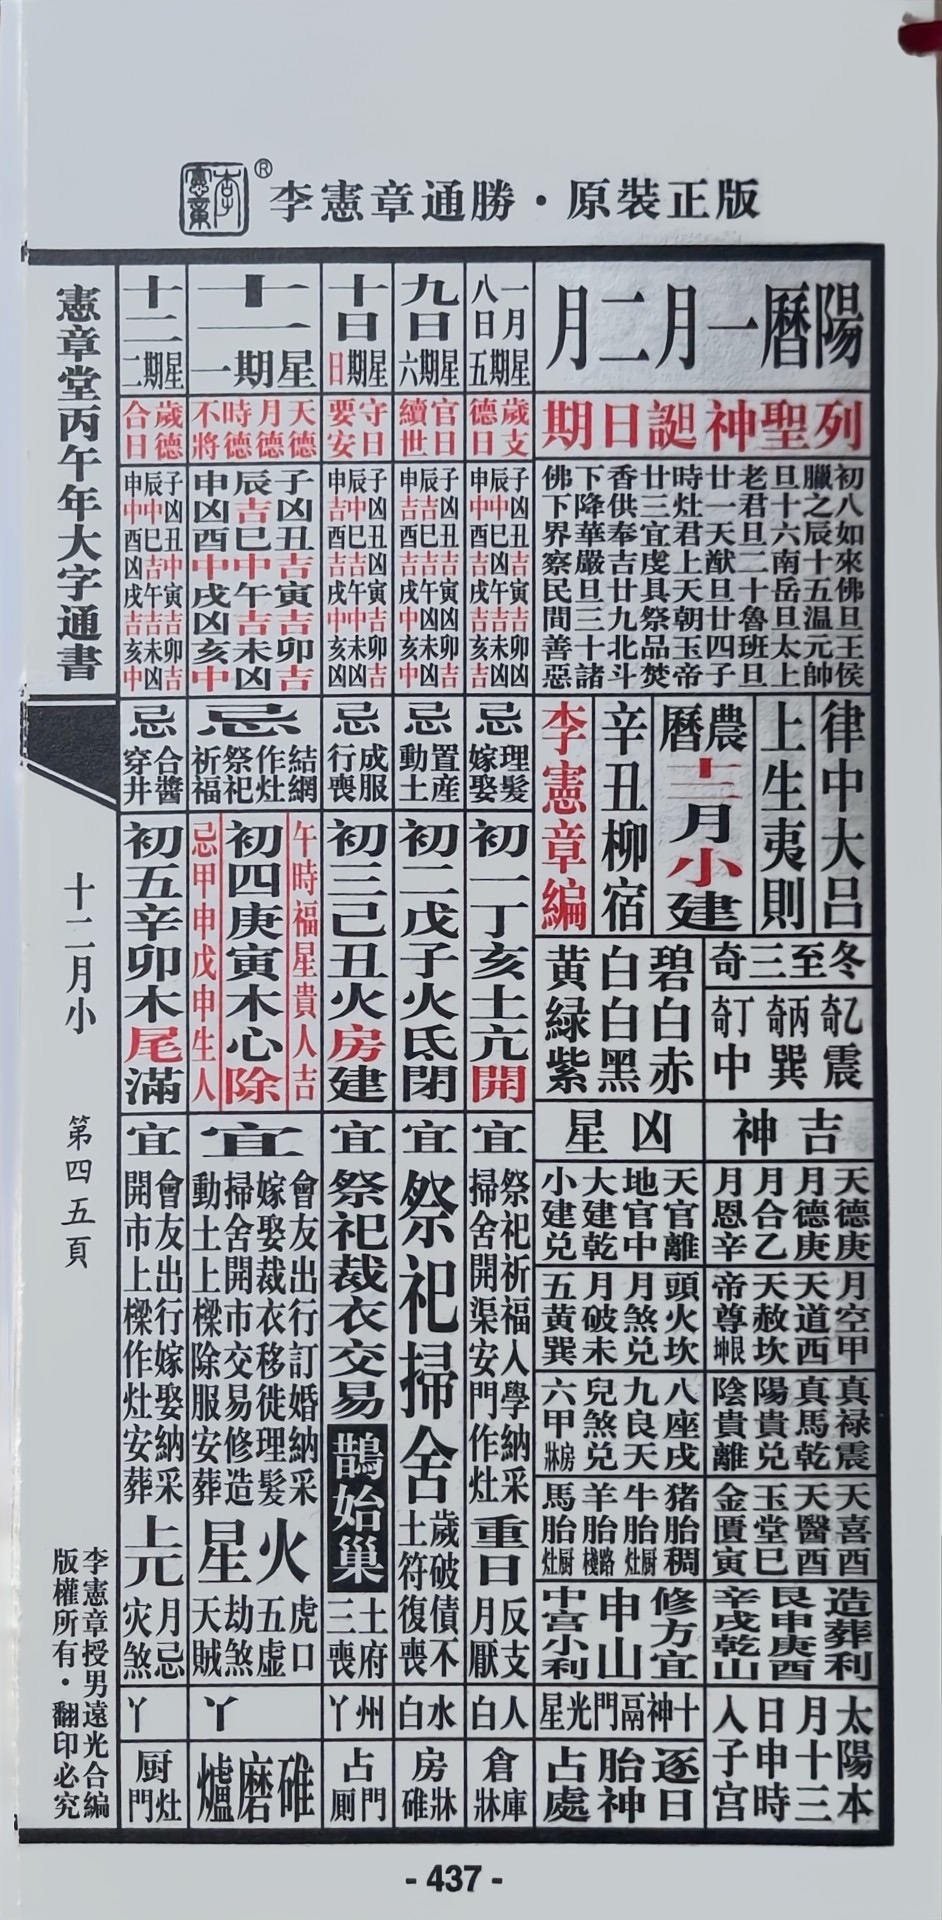 李憲章®
李憲章通勝・原裝正版
陽曆一月二月
列聖神誕日期
初八如來佛旦王侯
臘之辰十五溫元帥
旦十六南岳旦太上
老君旦二十魯班旦
廿一天猷旦廿四子
時灶君上天朝玉帝
廿三宜虔具祭品焚
香供奉吉廿九北斗
下降華嚴旦三十諸
佛下界察民間善惡
律中大呂
上生夷則
農曆十二月小建
辛丑柳宿
李憲章編
冬至三奇
乙奇震
丙奇巽
丁奇中
碧白赤
白白黑
黄綠紫
吉神
天德庚
月德庚
月合乙
月恩辛
月空甲
天道西
天赦坎
帝尊坤艮
真祿震
真馬乾
陽貴兌
陰貴離
天喜酉
天醫酉
玉堂巳
金匱寅
造葬利
艮申庚酉
辛戌乾山
太陽本
月十三
日申時
入子宮
凶星
天官離
地官中
大建乾
小建兌
頭火坎
月煞兌
月破未
五黄巽
八座戌
九良天
兒煞兌
六甲房牀
猪胎稠
牛胎厨灶
羊胎路棧
馬胎厨灶
修方宜
申山
中宮小利
十神鬲門光星
逐日
胎神
占處
一月八日
星期五
歲支
德日
子凶丑吉寅吉卯吉
辰中巳凶午吉未凶
申中酉吉戌吉亥凶
忌
理髮
嫁娶
初一丁亥土亢開
宜
祭祀祈福入學納采
掃舍開渠安門作灶
重日
反支
月厭
人白
倉庫
牀
九日
星期六
官日
續世
子凶丑吉寅凶卯吉
辰吉巳吉午凶未凶
申吉酉吉戌吉亥中
忌
置産
動土
初二戊子火氐閉
宜
祭祀掃舍
歲破債不
土符復喪
水白
房牀
碓
十日
星期日
守日
要安
子凶丑吉寅吉卯吉
辰中巳吉午中未凶
申吉酉吉戌中亥凶
忌
成服
行喪
初三己丑火房建
宜
祭祀裁衣交易
鵲始巢
土府
三喪
州丫
占門
厠
十一
星期一
天德
月德
時德
不將
子凶丑吉寅吉卯吉
辰吉巳中午吉未凶
申凶酉中戌凶亥中
忌
結網
作灶
祭祀
祈福
午時福星貴人吉
初四庚寅木心除
忌甲申戊申生人
宜
會友出行訂婚納采
嫁娶裁衣移徙理髮
掃舍開市交易修造
動土上樑除服安葬
火星
虎口
五虛
劫煞
天賊
丫
碓磨爐
十二
星期二
歲德
合日
子凶丑中寅吉卯吉
辰中巳吉午吉未凶
申中酉凶戌吉亥中
忌
合醬
穿井
初五辛卯木尾滿
宜
會友出行嫁娶納采
開市上樑作灶安葬
上元
月忌
灾煞
丫
厨灶
門
憲章堂丙午年大字通書
十二月小
第四五頁
李憲章授男遠光合編
版權所有・翻印必究
- 437 -